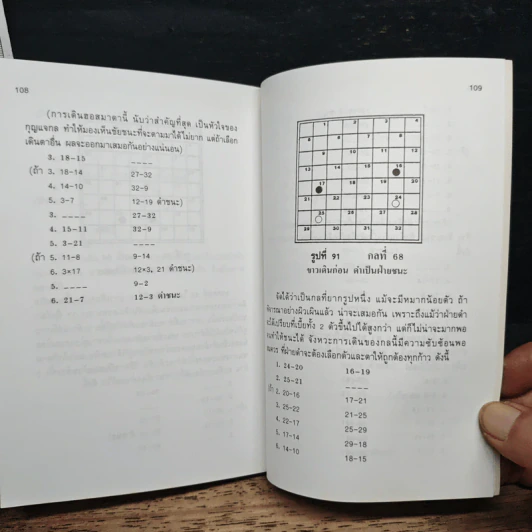 108
(การเดินฮอสมาตานี้ นับว่าสำคัญที่สุด เป็นหัวใจของ
กุญแจกล ทำให้มองเห็นชัยชนะที่จะตามมาได้ไม่ยาก แต่ถ้าเลือก
เดินตาอื่น ผลจะออกมาเสมอกันอย่างแน่นอน)
3. 18-15 ----
(ถ้า 3. 18-14 27-32
4. 14-10 32-9
5. 3-7 12-19 ดำชนะ)
3. ---- 27-32
4. 15-11 32-9
5. 3-21 ----
(ถ้า 5. 11-6 9-14
6. 3×17 12×3, 21 ดำชนะ)
5. ---- 9-2
6. 21-7 12-3 ดำชนะ
109
1 2 3 4
5 6 7 8
9 10 11 12
13 14 15 16
17 18 19 20
21 22 23 24
25 26 27 28
29 30 31 32
รูปที่ 91 กลที่ 68
ขาวเดินก่อน ดำเป็นฝ่ายชนะ
จัดได้ว่าเป็นกลที่ยากรูปหนึ่ง แม้จะมีหมากน้อยตัว ถ้า
พิจารณาอย่างผิวเผินแล้ว น่าจะเสมอกัน เพราะถึงแม้ว่าฝ่ายดำ
จะได้เปรียบที่เบี้ยทั้ง 2 ตัวขึ้นไปได้สูงกว่า แต่ก็ไม่น่าจะมากพอ
ทำให้ชนะได้ จังหวะการเดินของกลนี้มีความซับซ้อนพอ
สมควร ที่ฝ่ายดำจะต้องเลือกตัวและตาให้ถูกต้องทุกก้าว ดังนี้
1. 24-20 16-19
2. 25-21 ----
(ถ้า 2. 20-16 17-21
3. 25-22 21-25
4. 22-17 25-29
5. 17-14 29-18
6. 14-10 18-15